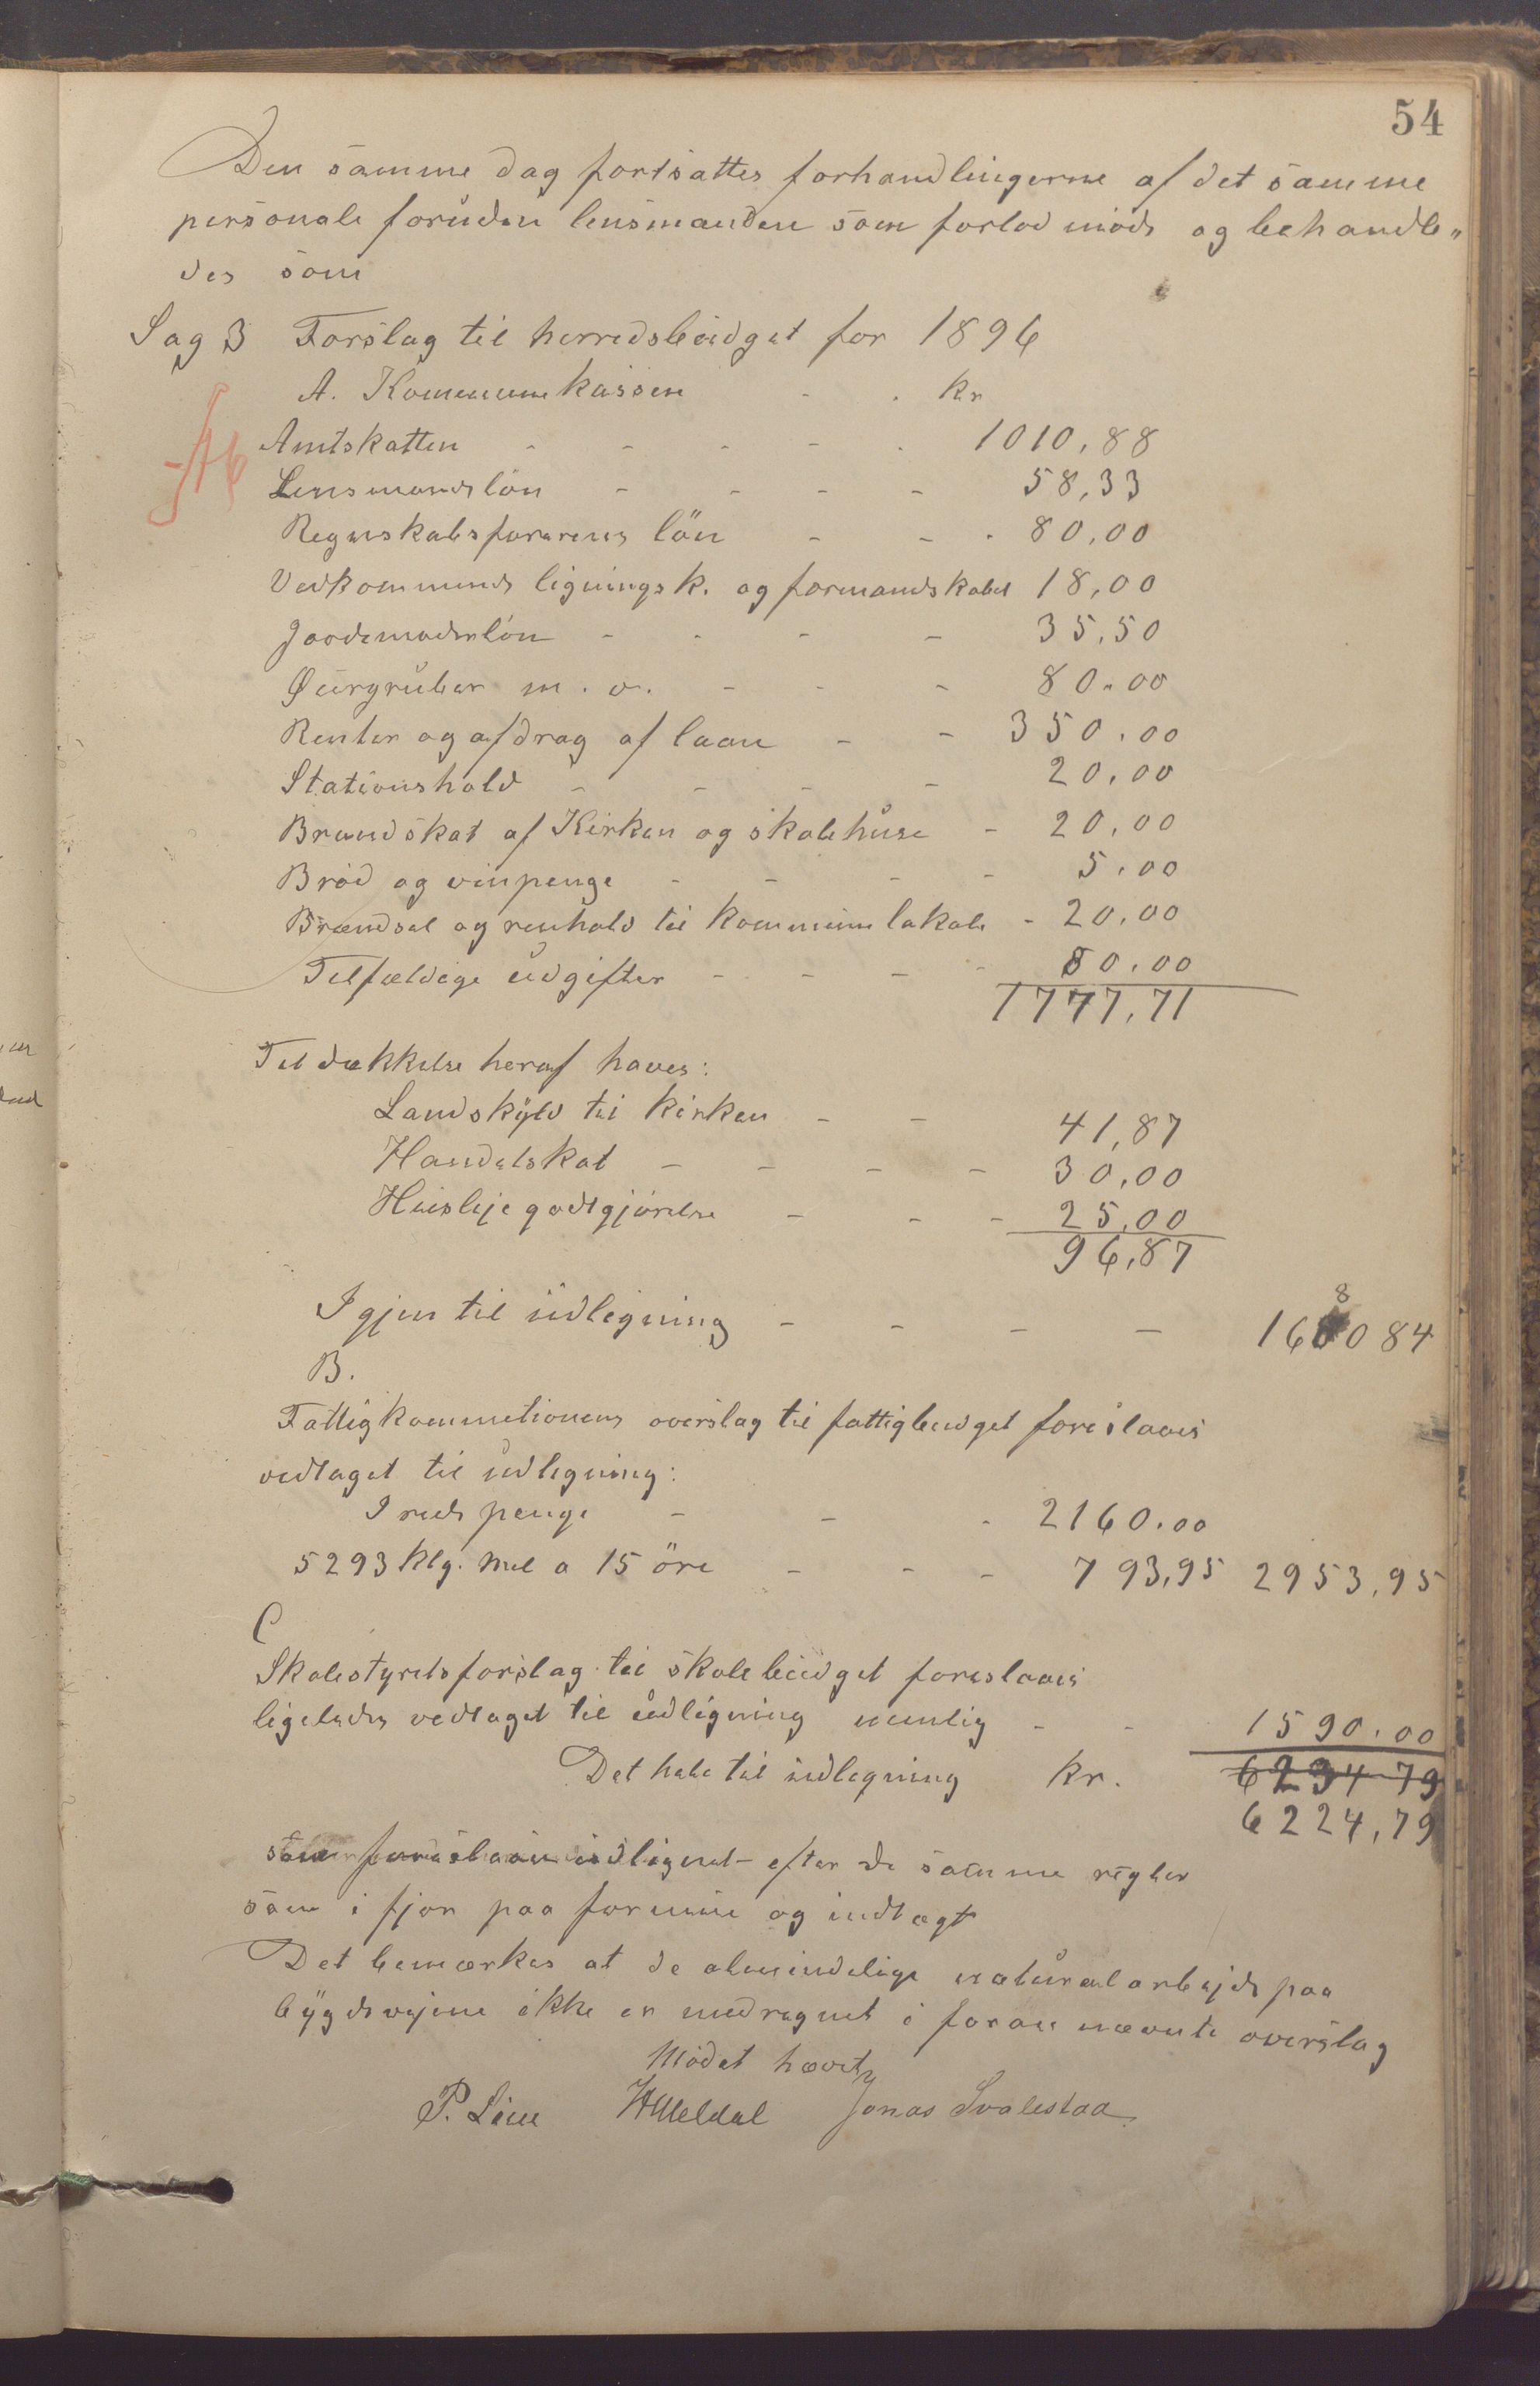 54
Den samme dag fortsattes forhandlingerne af det samme
personale foruden lensmanden som forlod møde og behandle„
des som
Sag 3 Forslag til herredsbudget for 1896
A. Kommunekassen - . kr
Amtskatten - - - - . 1010,88
Lensmandsløn - - - - 58,33
Regnskabsførerens lön - - . 80,00
Vedkommende ligningsk. og formandskabet 18,00
Jordemoderløn - - - - 35,50
gruber m. v. - - - 80.00
Renter og afdrag af laan - - 350.00
Stationshold - - - - 20,00
Brandskat af Kirken og skolehuse - 20,00
Brød og vinpenge - - - - 5.00
Brændsel og renhold til kommunelokale - 20,00
Tilfældige udgifter - - - - 80.00
1777,71
Til dækkelse heraf haves:
Landskyld til kirken - - 41,87
Handelskat - - - - 30,00
Huslejegodtgjørelse - - - 25,00
96,87
Igjen til udligning - - - - 1680 84
B.
Fattigkommitionens overslag til fattigbudget foreslaaes
vedtaget til udligning:
I rede penge - - - 2160.00
5293 klg. mel a 15 öre - - - 793,95 2953,95
C
Skolestyrets forslag til skolebudget foreslaaes
ligeledes vedtaget til udligning nemlig - - 1590.00
Det hele til udligning kr. 6234 79
6224,79
som foreslaaes udlignet efter de samme regler
som i fjor paa formue og indtægt
Det bemærkes at de almindelige naturalarbejde paa
bygdevejene ikke er medregnet i foran nævnte overslag
Mødet hævet
P. Lima Jonas Svalestad